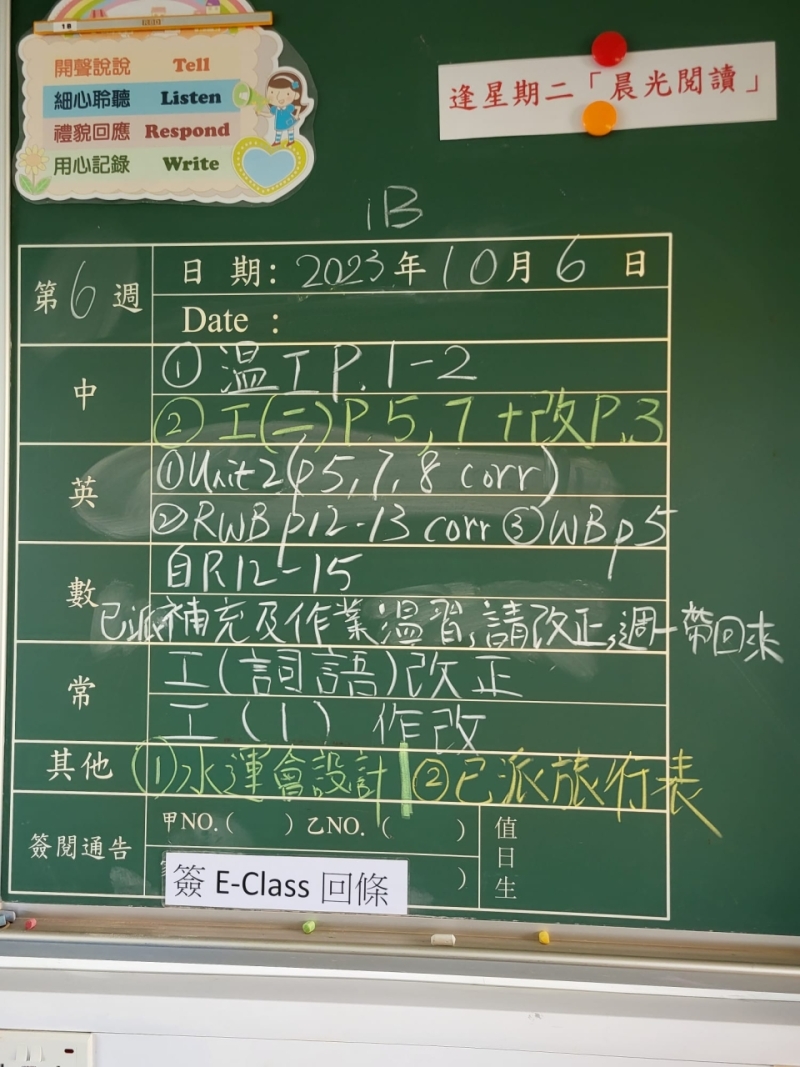 1B
開聲說說 Tell
細心聆聽 Listen
禮貌回應 Respond
用心記錄 Write
逢星期二「晨光閱讀」
1B
第6週
日期：2023年10月6日
Date :
中
① 温工P.1-2
② 工(二)P.5,7+改P.3
英
①Unit2(p5,7,8 corr)
②RWB p12-13 corr ③WB p5
數
自R12-15
已派補充及作業温習,請改正,週一帶回來
常
工(詞語)改正
工(1)作改
其他
①水運會設計 ②已派旅行表
簽閱通告
甲NO.( ) 乙NO.( )
)
簽 E-Class 回條
值日生